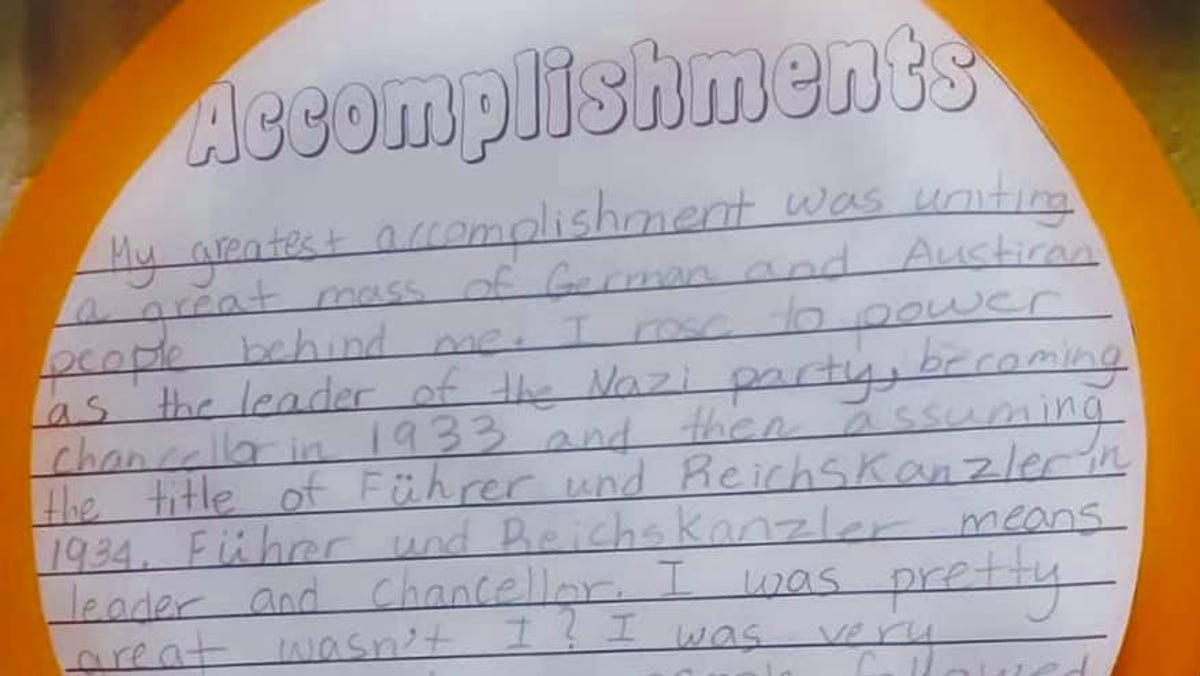 Accomplishments
My greatest accomplishment was uniting
a great mass of German and Austiran
people behind me. I rose to power
as the leader of the Nazi party, becoming
chancellor in 1933 and then assuming
the title of Führer und Reichskanzler in
1934. Führer und Reichskanzler means
leader and chancellor. I was pretty
great wasn't I? I was very
followed